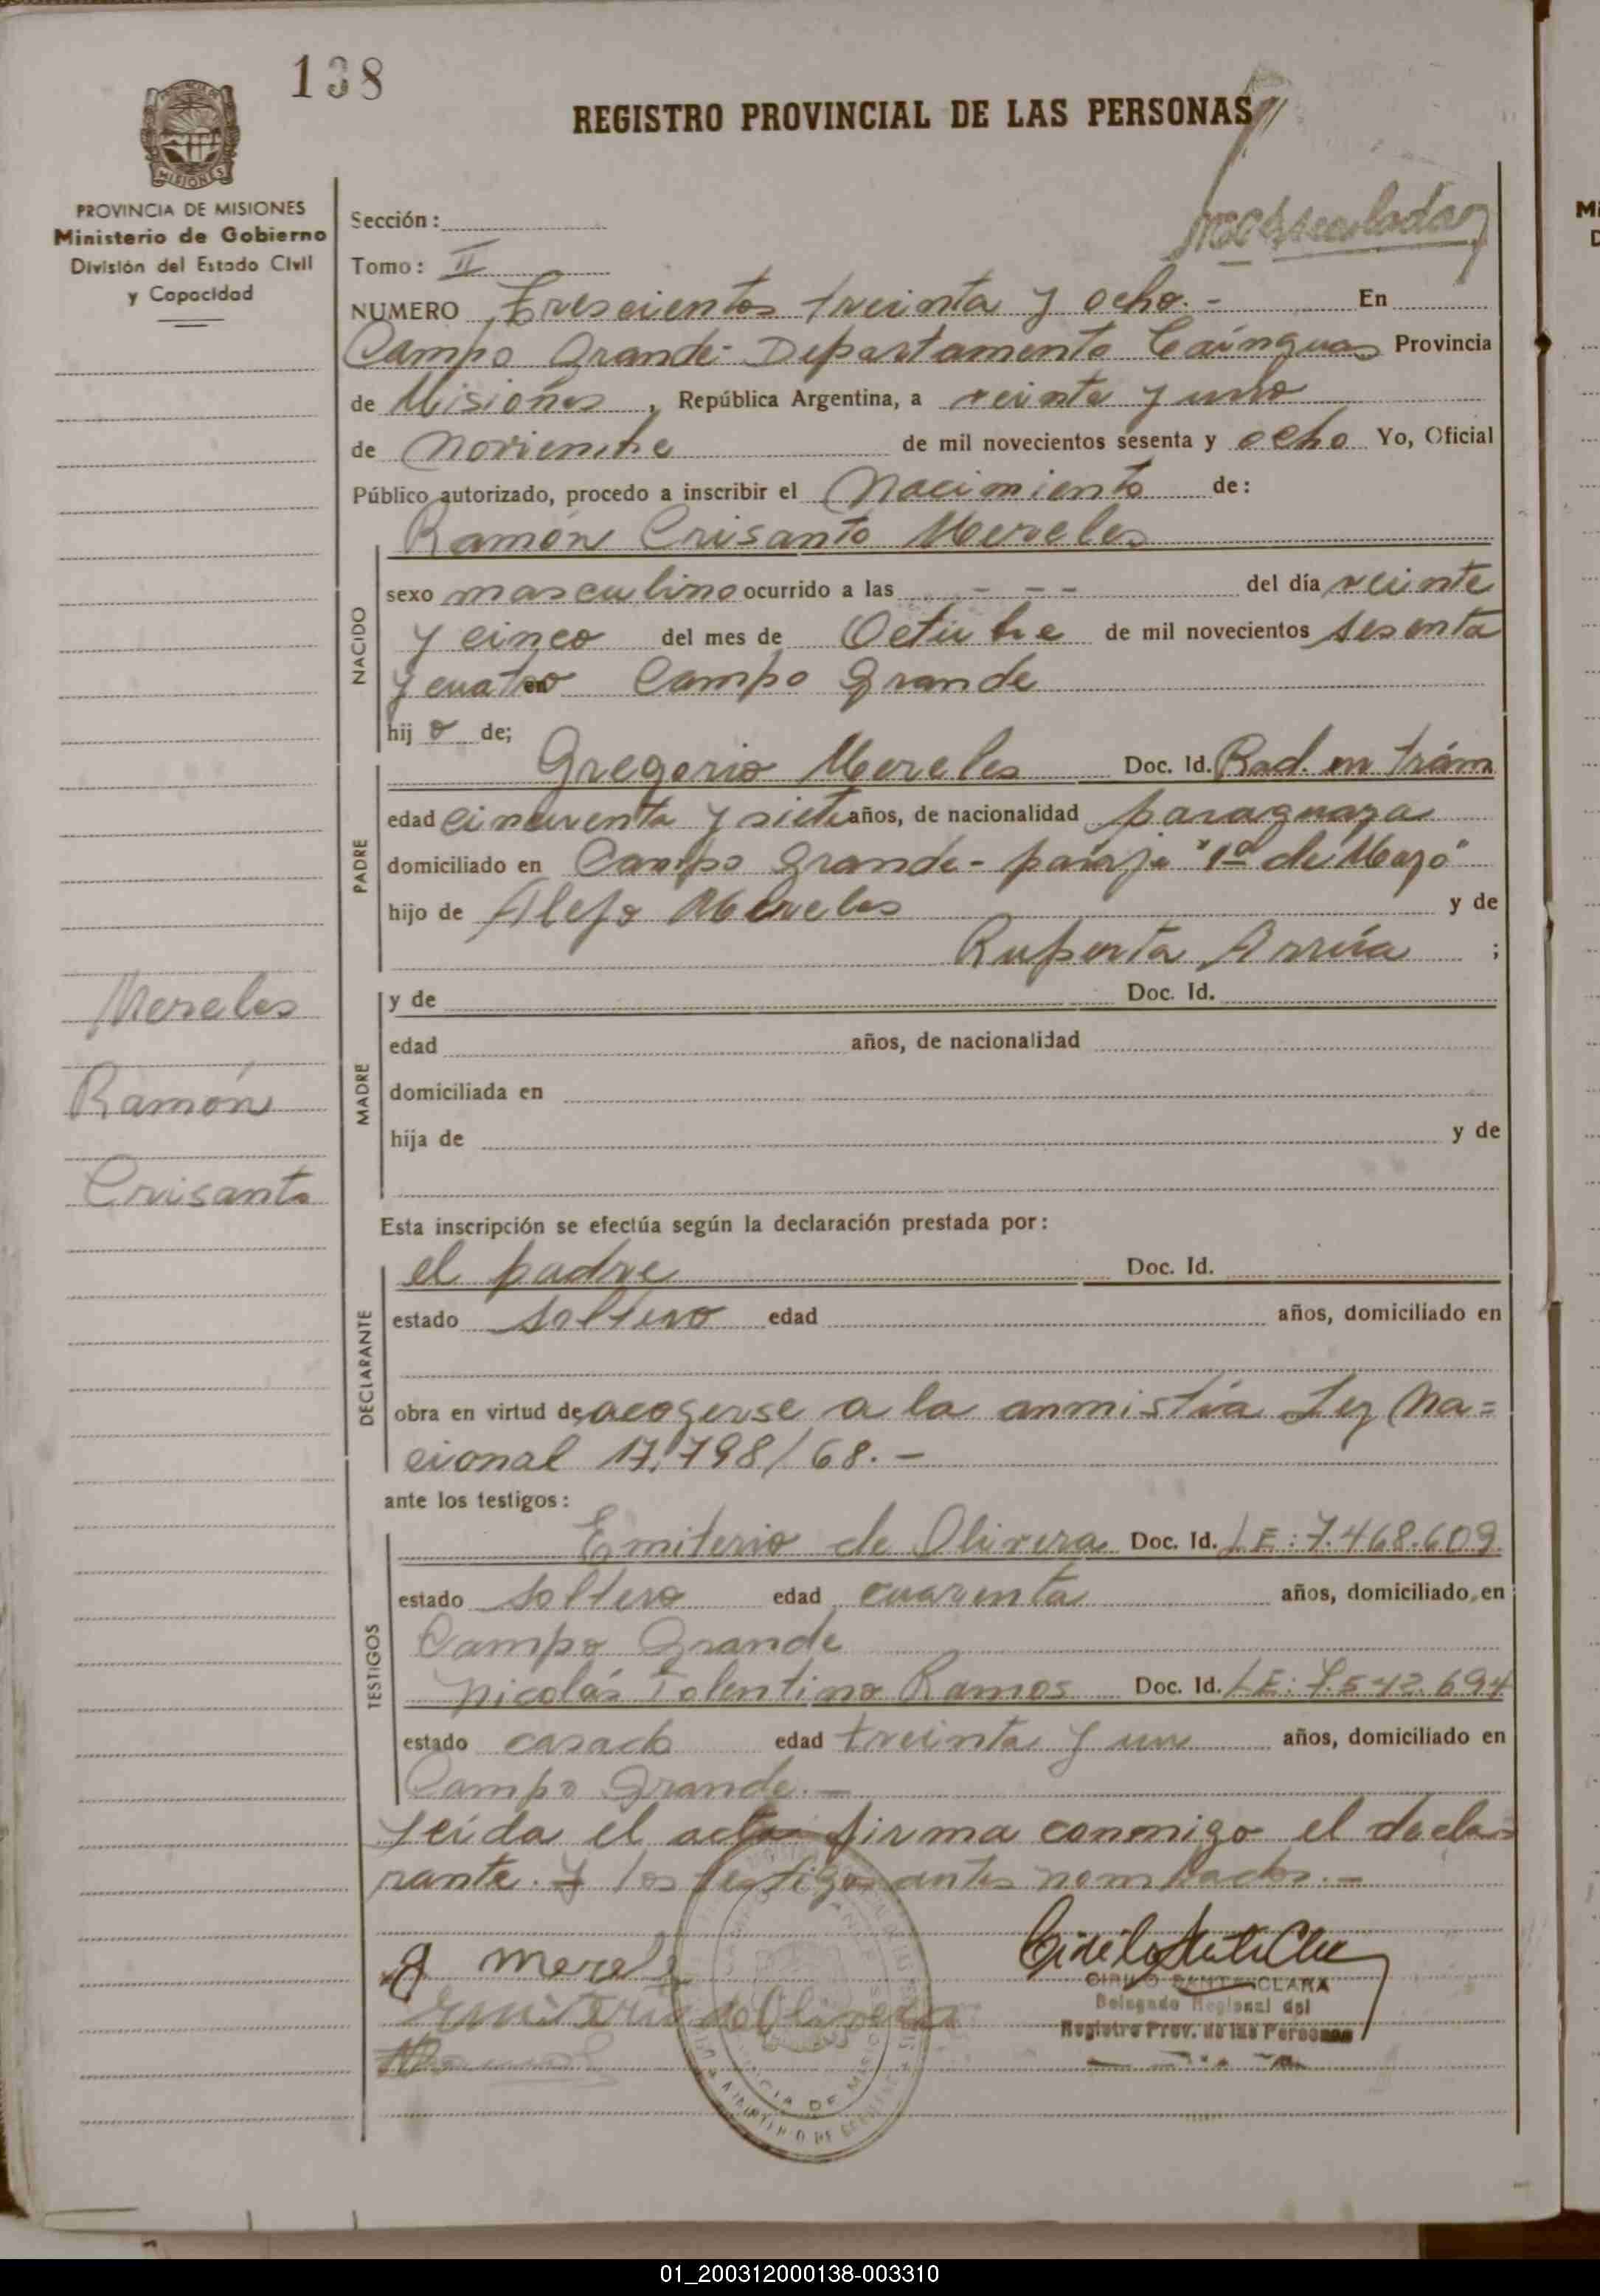 138
REGISTRO PROVINCIAL DE LAS PERSONAS
MISIONES
PROVINCIA DE MISIONES
Ministerio de Gobierno
División del Estado Civil
y Capacidad
Sección:
Tomo: II
NUMERO Trescientos treinta y ocho.- En
Campo Grande- Departamento Cainguas Provincia
de Misiones, República Argentina, a veinte y uno
de Noviembre de mil novecientos sesenta y ocho Yo, Oficial
Público autorizado, procedo a inscribir el Nacimiento de:
Ramón Crisanto Mereles
NACIDO
sexo masculino ocurrido a las - - - del día veinte
y cinco del mes de Octubre de mil novecientos sesenta
y cuatro en Campo Grande
hij o de;
PADRE
Gregorio Mereles Doc. Id. Rad. en trám
edad cincuenta y siete años, de nacionalidad paraguaya
domiciliado en Campo Grande- paraje "1º de Mayo"
hijo de Alejo Mereles y de
Ruperta Arrúa ;
MADRE
y de Doc. Id.
edad años, de nacionalidad
domiciliada en
hija de y de
Mereles
Ramón
Crisanto
Esta inscripción se efectúa según la declaración prestada por:
DECLARANTE
el padre Doc. Id.
estado soltero edad años, domiciliado en
obra en virtud de acogerse a la anmistía Ley Na=
cional 17.798/68.-
ante los testigos:
TESTIGOS
Emiterio de Olivera Doc. Id. LE: 7.468.609.
estado soltero edad cuarenta años, domiciliado, en
Campo Grande
Nicolás Tolentino Ramos Doc. Id. LE: 7.542.694
estado casado edad treinta y un años, domiciliado en
Campo Grande.-
Leída el acta firma conmigo el decla-
rante. y los testigos antes nombrados.-
Emiterio de Olivera
CIRILO SANTA CLARA
Delegado Regional del
Registro Prov. de las Personas
01_200312000138-003310